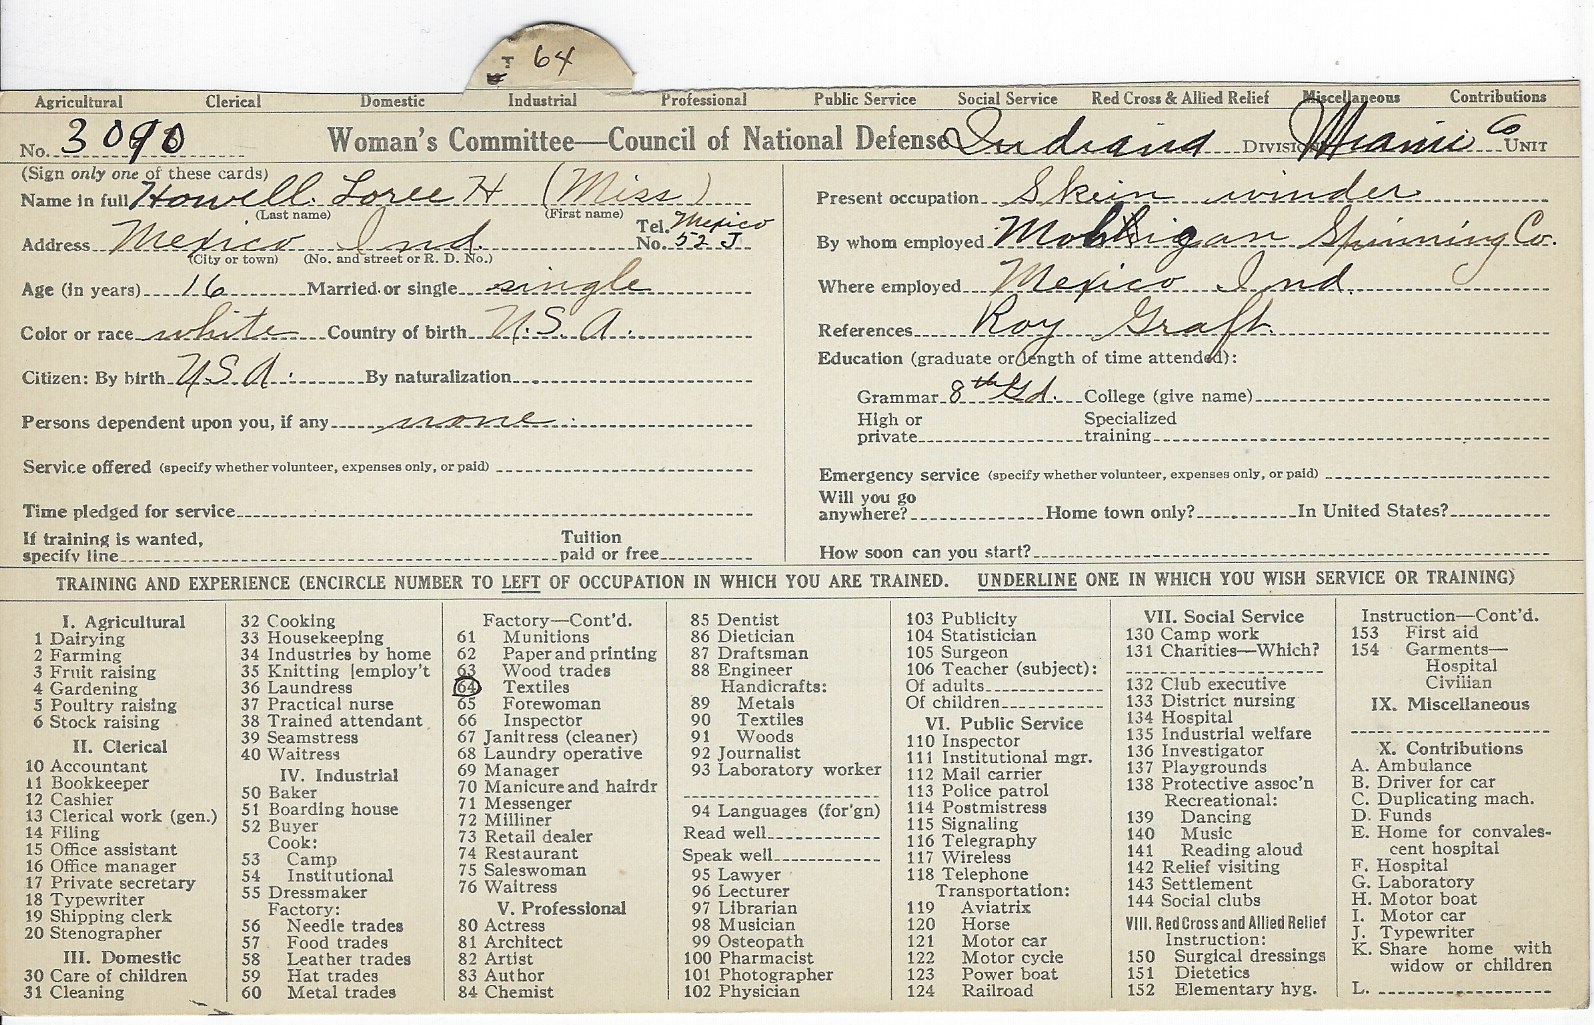 64
Agricultural Clerical Domestic Industrial Professional Public Service Social Service Red Cross & Allied Relief Miscellaneous Contributions
No. 3090 Woman's Committee—Council of National Defense Indiana Division Miami Co Unit
(Sign only one of these cards)
Name in full Howell Loree H (Miss)
(Last name) (First name)
Address Mexico Ind. Tel. No. Mexico 52 J
(City or town) (No. and street or R. D. No.)
Age (in years) 16 Married or single single
Color or race white Country of birth U.S.A.
Citizen: By birth U.S.A. By naturalization
Persons dependent upon you, if any none
Service offered (specify whether volunteer, expenses only, or paid)
Time pledged for service
If training is wanted, specify line Tuition paid or free
Present occupation Skein winder
By whom employed Spinning Co.
Where employed Mexico Ind.
References Roy Graft
Education (graduate or length of time attended):
Grammar 8th Gd. College (give name)
High or private Specialized training
Emergency service (specify whether volunteer, expenses only, or paid)
Will you go anywhere? Home town only? In United States?
How soon can you start?
TRAINING AND EXPERIENCE (ENCIRCLE NUMBER TO LEFT OF OCCUPATION IN WHICH YOU ARE TRAINED. UNDERLINE ONE IN WHICH YOU WISH SERVICE OR TRAINING)
I. Agricultural
1 Dairying
2 Farming
3 Fruit raising
4 Gardening
5 Poultry raising
6 Stock raising
II. Clerical
10 Accountant
11 Bookkeeper
12 Cashier
13 Clerical work (gen.)
14 Filing
15 Office assistant
16 Office manager
17 Private secretary
18 Typewriter
19 Shipping clerk
20 Stenographer
III. Domestic
30 Care of children
31 Cleaning
32 Cooking
33 Housekeeping
34 Industries by home
35 Knitting [employ't
36 Laundress
37 Practical nurse
38 Trained attendant
39 Seamstress
40 Waitress
IV. Industrial
50 Baker
51 Boarding house
52 Buyer
Cook:
53 Camp
54 Institutional
55 Dressmaker
Factory:
56 Needle trades
57 Food trades
58 Leather trades
59 Hat trades
60 Metal trades
Factory—Cont'd.
61 Munitions
62 Paper and printing
63 Wood trades
64 Textiles
65 Forewoman
66 Inspector
67 Janitress (cleaner)
68 Laundry operative
69 Manager
70 Manicure and hairdr
71 Messenger
72 Milliner
73 Retail dealer
74 Restaurant
75 Saleswoman
76 Waitress
V. Professional
80 Actress
81 Architect
82 Artist
83 Author
84 Chemist
85 Dentist
86 Dietician
87 Draftsman
88 Engineer
Handicrafts:
89 Metals
90 Textiles
91 Woods
92 Journalist
93 Laboratory worker
94 Languages (for'gn)
Read well
Speak well
95 Lawyer
96 Lecturer
97 Librarian
98 Musician
99 Osteopath
100 Pharmacist
101 Photographer
102 Physician
103 Publicity
104 Statistician
105 Surgeon
106 Teacher (subject):
Of adults
Of children
VI. Public Service
110 Inspector
111 Institutional mgr.
112 Mail carrier
113 Police patrol
114 Postmistress
115 Signaling
116 Telegraphy
117 Wireless
118 Telephone
Transportation:
119 Aviatrix
120 Horse
121 Motor car
122 Motor cycle
123 Power boat
124 Railroad
VII. Social Service
130 Camp work
131 Charities—Which?
132 Club executive
133 District nursing
134 Hospital
135 Industrial welfare
136 Investigator
137 Playgrounds
138 Protective assoc'n
Recreational:
139 Dancing
140 Music
141 Reading aloud
142 Relief visiting
143 Settlement
144 Social clubs
VIII. Red Cross and Allied Relief
Instruction:
150 Surgical dressings
151 Dietetics
152 Elementary hyg.
Instruction—Cont'd.
153 First aid
154 Garments—
Hospital
Civilian
IX. Miscellaneous
X. Contributions
A. Ambulance
B. Driver for car
C. Duplicating mach.
D. Funds
E. Home for convales-
cent hospital
F. Hospital
G. Laboratory
H. Motor boat
I. Motor car
J. Typewriter
K. Share home with
widow or children
L.